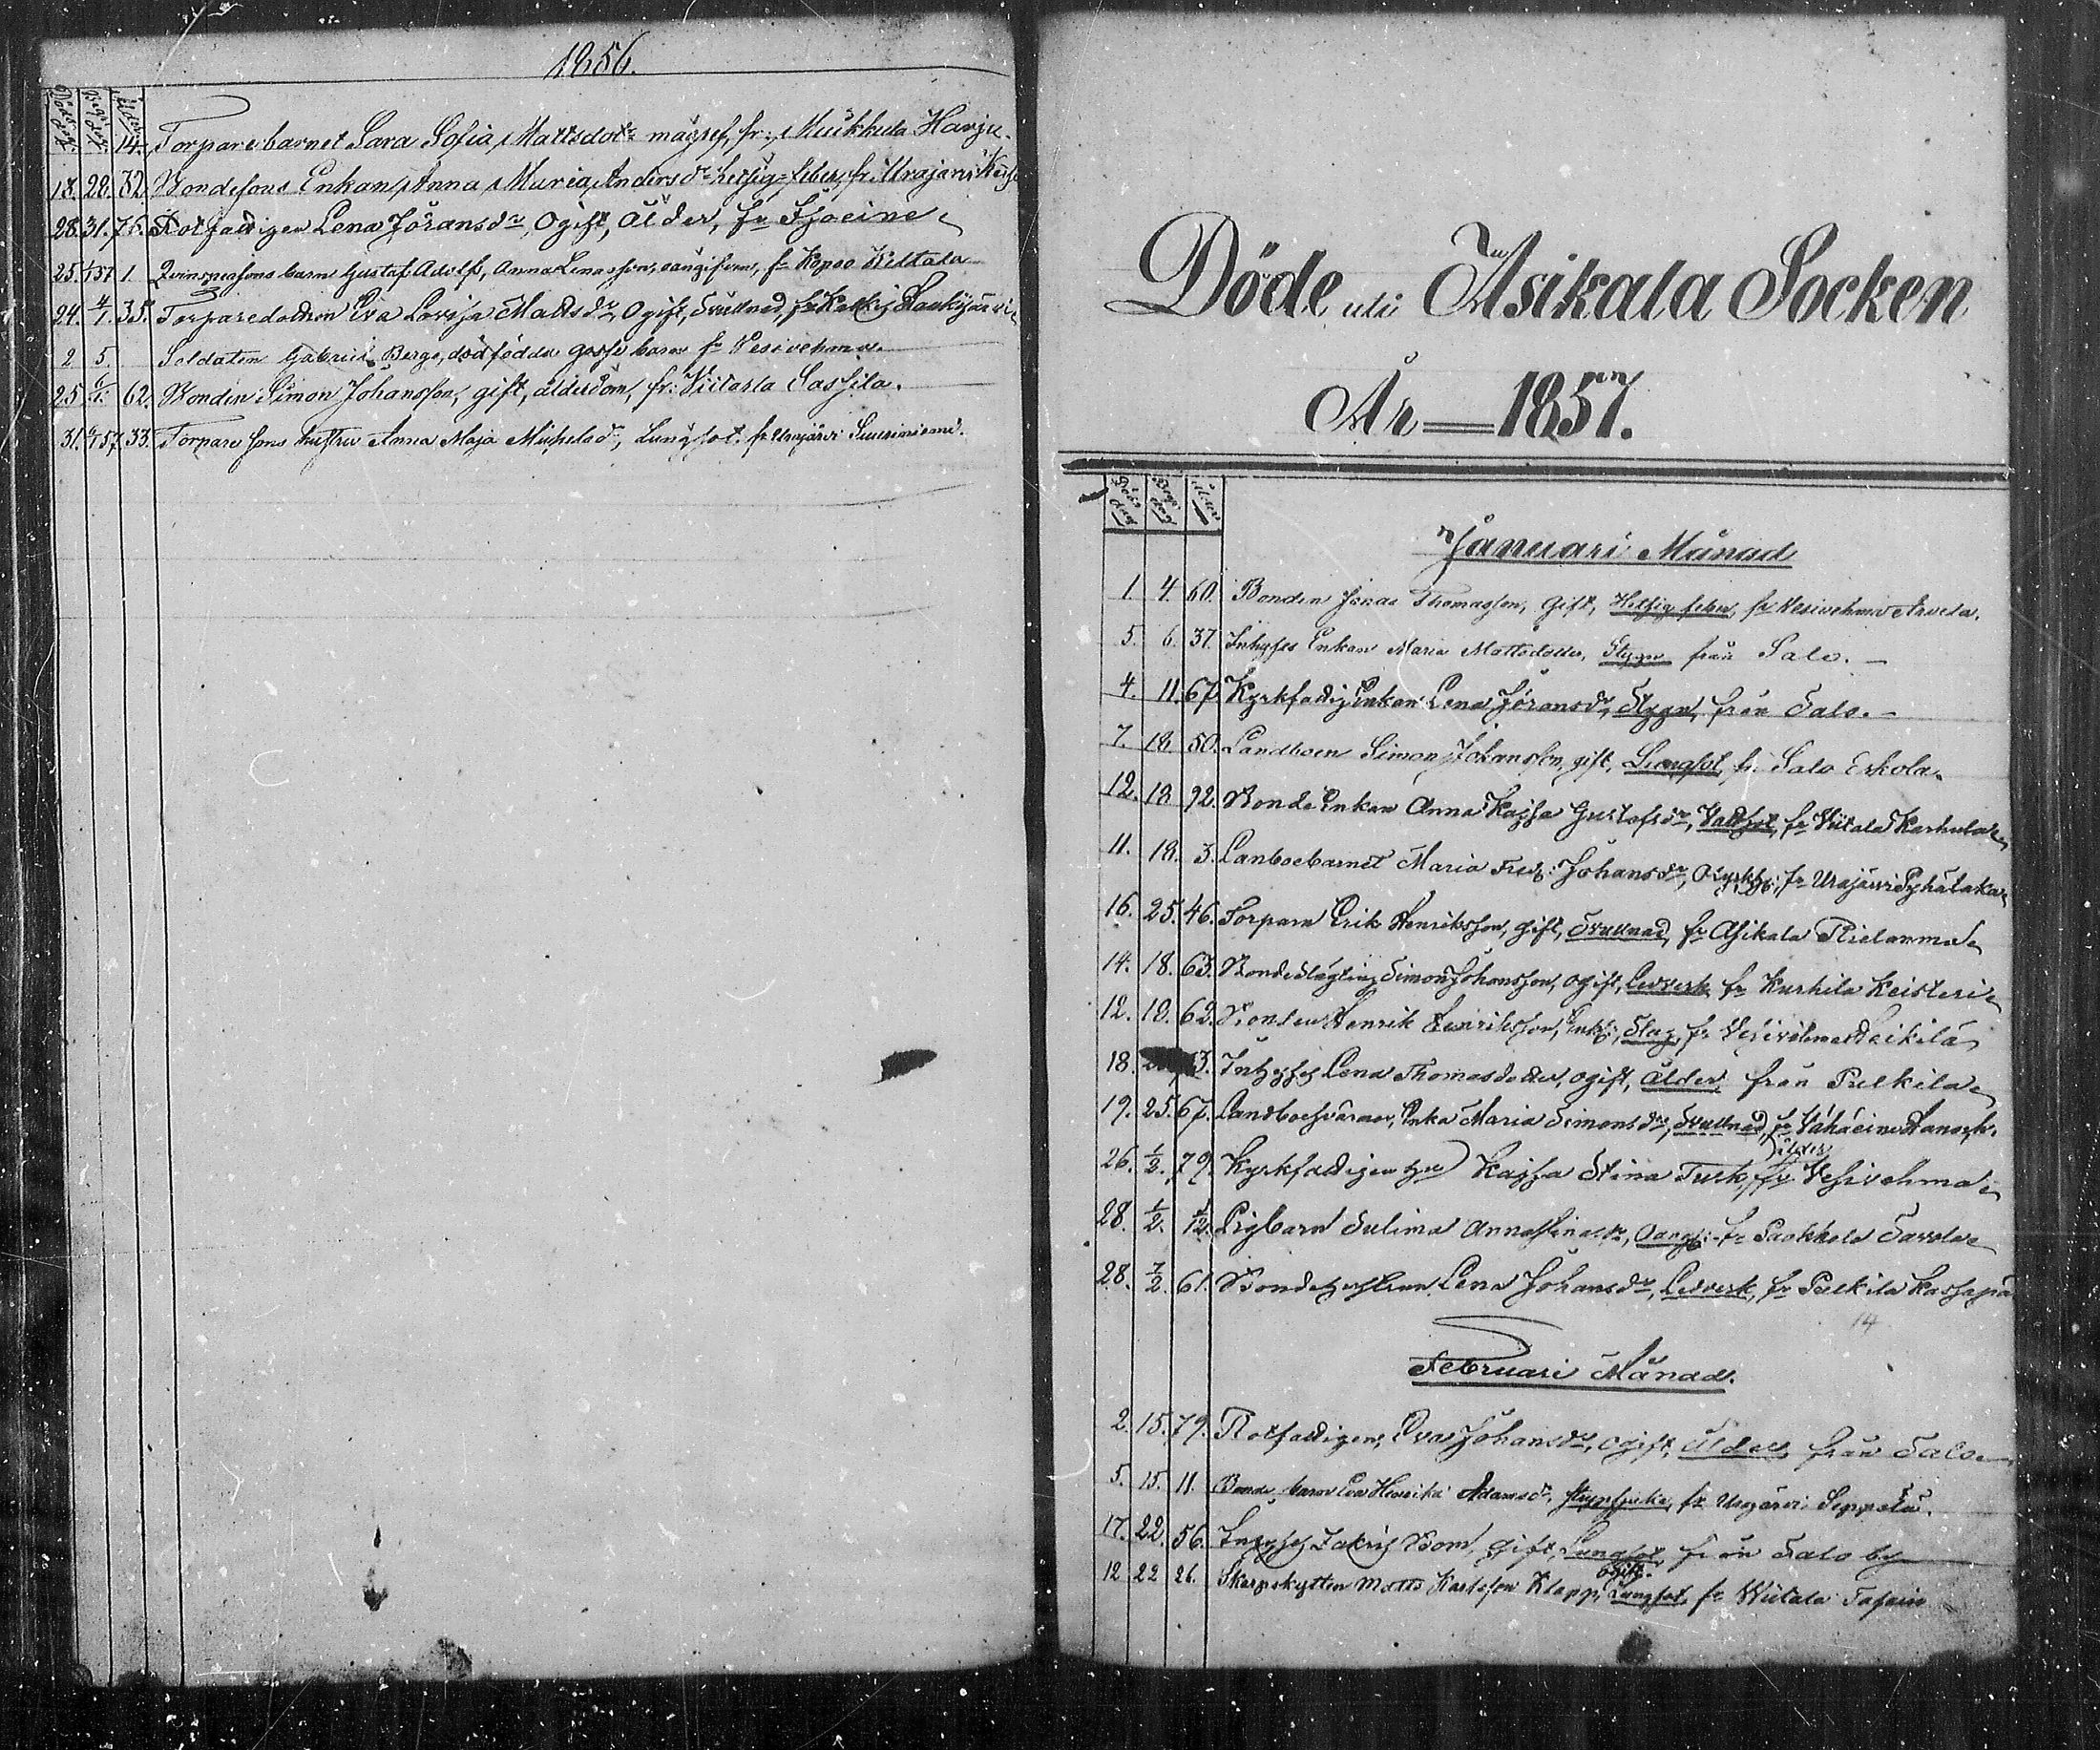 1856.
Döds dag. Begr. dag. Ålder
14. Torparebarnet Sara Sofia Mattsdotr magref, fr: Muikkula Harju.
18. 28. 32. Bondesons Enkan Anna Maria Andersdr hetsig=feber, fr. Urajärvi
28. 31. 76. Rotfattigen Lena Jöransdr, Ogift, Ålder, fr
25. 1/1 57 1. barn Gustaf Adolf, Anna Lenasson, oangifven, fr Kopso
24. 4/1. 35. Torparedottren Eva Lovisa Mattsdr, Ogift, Svullnad, fr Kalkis
2 5. Soldaten Gabriel Bergs, dödfödde gosse barn fr Vesivehma.
25 6/1. 62. Bonden Simon Johansson, gift, ålderdom, fr: Viitaila Sassila.
31. 6/1 57. 33. Torpare sons hustru Anna Maja Michelsdr, Lungsot. fr Urajärvi
Döde uti Asikala Socken
År 1857.
Döds dag Begr. dag Ålder
Januari Månad
1. 4. 60. Bonden Jonas Thomasson, Gift, Hetsig feber, fr Vesivehma Arvela.
5. 6. 37. Inhyses Enkan Maria Mattsdotter, Stygn från Salo.
4. 11. 67. Kyrkfattig Enkan Lena Jöransdr, Stygn, från Salo.
7. 18 50. Landboen Simon Johansson, gift, Lungsot, fr. Salo Eskola.
12. 18 92. Bonde Enkan Anna Kajsa Gustafsdr, fr Viitala Karhula
11. 18. 3. Lanboebarnet Maria Fred: Johansdr, fr Urajärvi Pyhälaka
16. 25. 46. Torparn Erik Henriksson, gift, Svullnad, fr Asikala
14. 18. 63. Bonde Simon Johansson, ogift, Ledverk fr Kurhila Keisteri
12. 18. 62. Bonden Henrik Henriksson, Enkl:, Slag, fr Vesivehma
18. 3. Inhyses Lena Thomasdotter, ogift, Ålder från Pulkila
19. 25. 67. Landboesvärmor, Enka Maria Simonsdr, Svullnad, fr Vähäeino
26. 1/2. 79. Kyrkfattigen Kajsa Stina Turk, ålder fr Vesivehma
28. 1/2. 1/12. Pigbarn Sulima Annastinasdr, Oang: fr
28. 7/2. 61. Bondehustrun Lena Johansdr, Ledverk, fr Pulkila
14
Februari Månad.
2. 15. 79. Rotfattigen, Eva Johansdr, ogift, Ålder, från Salo
5. 15. 11. Bonde barn Eva Henrika Adamsdr, strypsjuka, fr Urajärvi Seppälä.
17. 22. 56. Inhyses Zakris Bom, gift, Lungsot, från Salo by
12 22 26. Skarpskytten Matts Karlsson Klapp, ogift. Lungsot, fr Viitala